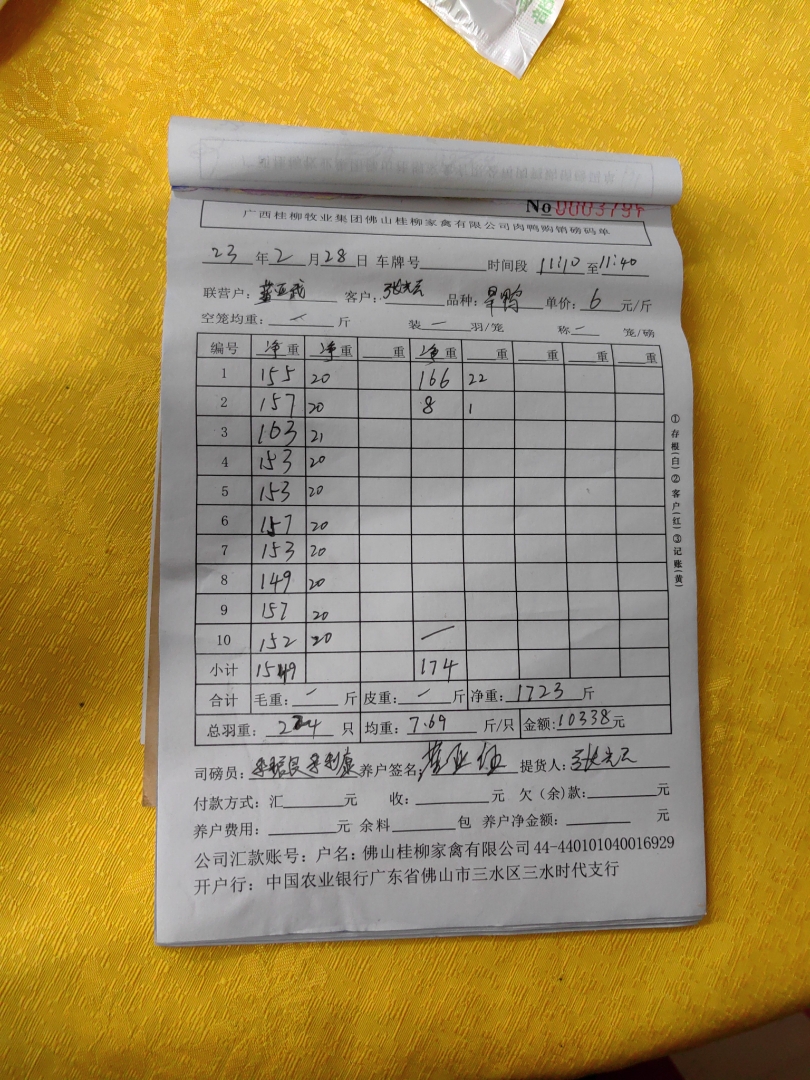 No 000379
广西桂柳牧业集团佛山桂柳家禽有限公司肉鸭购销磅码单
23 年 2 月 28 日 车牌号 时间段 11:10 至 11:40
联营户: 客户: 张光云 品种: 旱鸭 单价: 6 元/斤
空笼均重: 一 斤 装 一 羽/笼 称 一 笼/磅
编号 净重 净重 重 净重 重 重 重 重
1 155 20 166 22
2 157 20 8 1
3 163 21
4 153 20
5 153 20
6 157 20
7 153 20
8 149 20
9 157 20
10 152 20 一
小计 1549 174
合计 毛重: 一 斤 皮重: 一 斤 净重: 1723 斤
总羽重: 224 只 均重: 7.69 斤/只 金额: 10338 元
司磅员: 养户签名: 提货人: 张光云
付款方式: 汇 元 收: 元 欠(余)款: 元
养户费用: 元 余料 包 养户净金额: 元
公司汇款账号: 户名: 佛山桂柳家禽有限公司 44-440101040016929
开户行: 中国农业银行广东省佛山市三水区三水时代支行
①存根(白)②客户(红)③记账(黄)